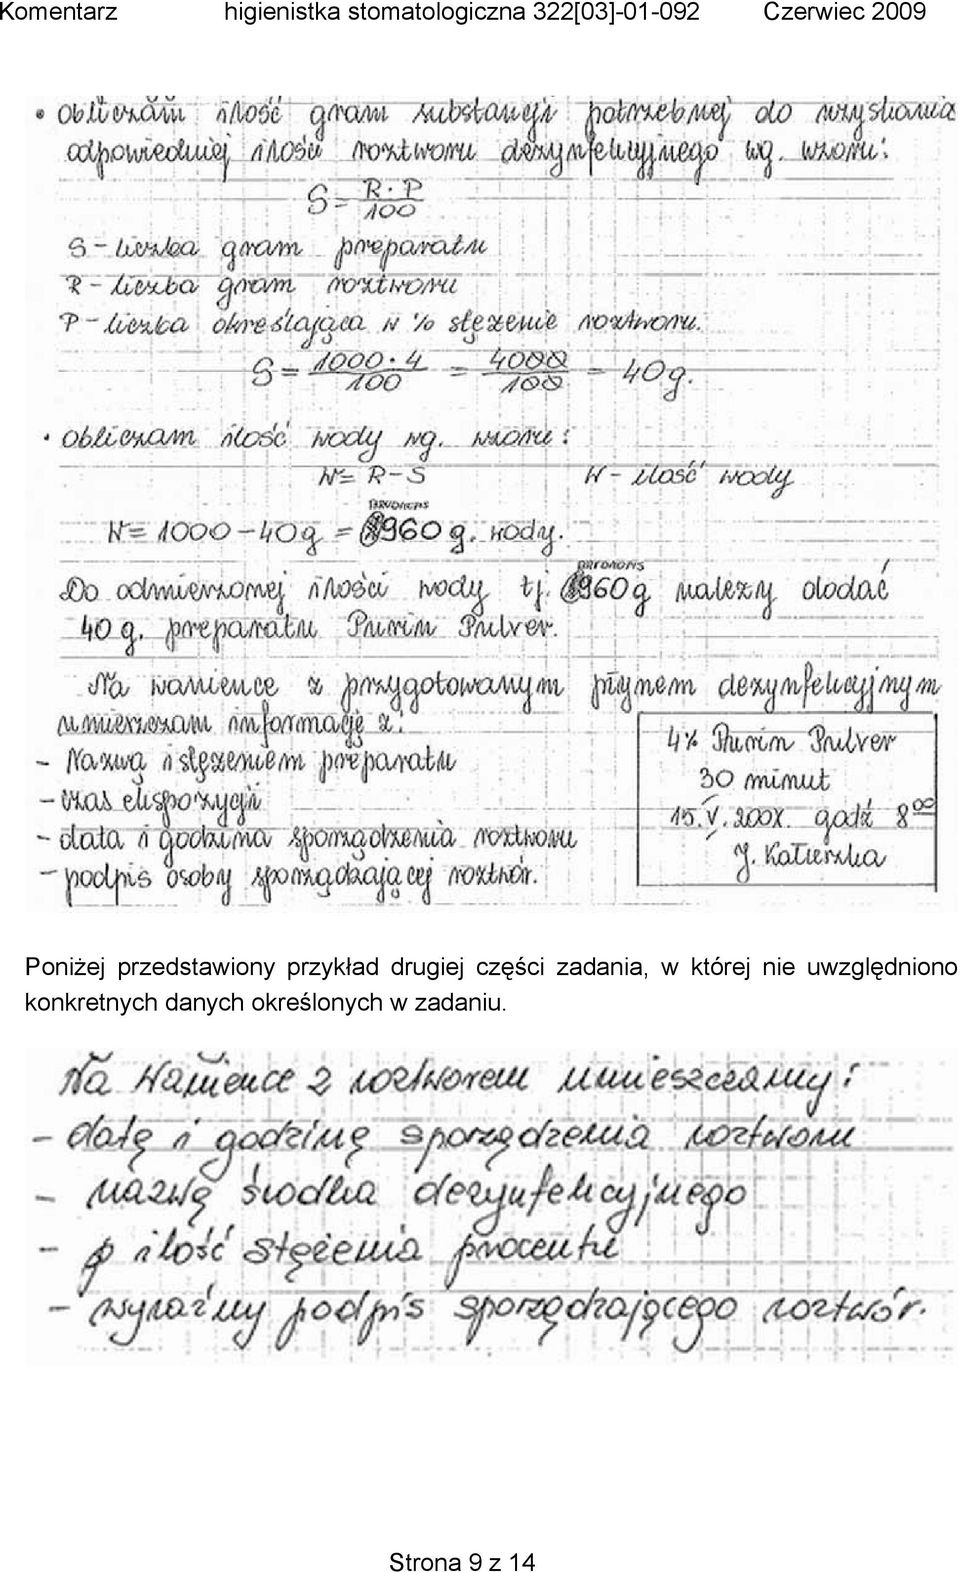 Komentarz higienistka stomatologiczna 322[03]-01-092 Czerwiec 2009
• obliczam ilość gram substancji potrzebnej do uzyskania
odpowiedniej ilości roztworu dezynfekcyjnego wg. wzoru:
S = R · P / 100
S – liczba gram preparatu
R – liczba gram roztworu
P – liczba określająca w % stężenie roztworu.
S = 1000 · 4 / 100 = 4000 / 100 = 40g.
• obliczam ilość wody wg. wzoru:
W = R – S W – ilość wody
W = 1000 – 40g = 960g. wody.
Do odmierzonej ilości wody tj. 960g należy dodać
40g. preparatu Purin Pulver.
Na wanience z przygotowanym płynem dezynfekcyjnym
umieszczam informację z:
- Nazwą i stężeniem preparatu
- czas ekspozycji
- data i godzina sporządzenia roztworu
- podpis osoby sporządzającej roztwór.
4% Purin Pulver
30 minut
15.V.200X. godź 8⁰⁰
J. Katierska
Poniżej przedstawiony przykład drugiej części zadania, w której nie uwzględniono
konkretnych danych określonych w zadaniu.
Na wanience z roztworem umieszczamy:
- datę i godzinę sporządzenia roztworu
- nazwę środka dezynfekcyjnego
- ilość stężenia procentu
- wyraźny podpis sporządzającego roztwór.
Strona 9 z 14